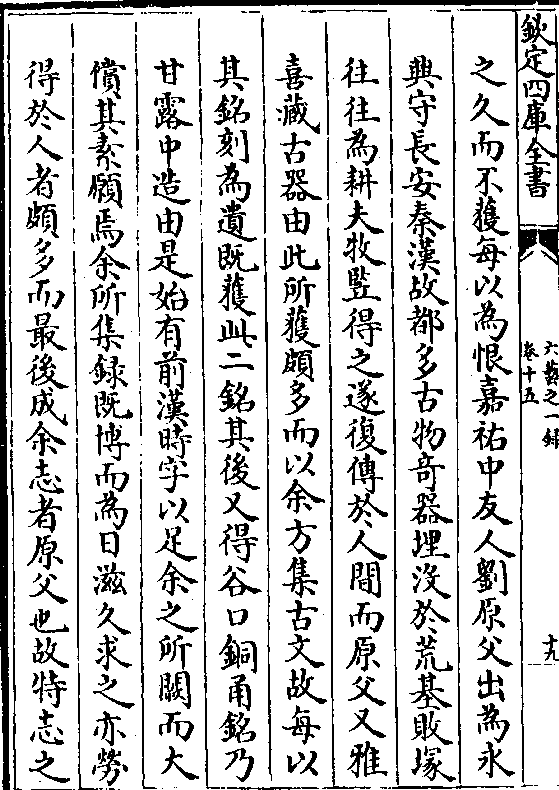 欽定四庫全書
六藝之一録
卷十五
十九
之久而不獲每以為恨嘉祐中友人劉原父出為永
興守長安秦漢故都多古物奇器埋沒於荒基敗塚
往往為耕夫牧豎得之遂復傳於人間而原父又雅
喜藏古器由此所獲頗多而以余方集古文故每以
其銘刻為遺既獲此二銘其後又得谷口銅甬銘乃
甘露中造由是始有前漢時字以足余之所闕而大
償其素願焉余所集録既博而為日滋久求之亦勞
得於人者頗多而最後成余志者原父也故特志之